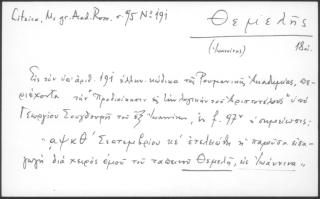 Litzica, Ms. gr. Acad. Rom. σ. 95 Νο 191
Θεμελῆς
(Ἰωάννινα)
18 αἰ.
Εἰς τὸν ὑπ' ἀριθ. 191 ἑλλην. κώδικα τῆς Ρουμανικῆς Ἀκαδημίας, πε-
ριέχοντα τὴν "Προδιοίκησιν εἰς τὴν λογικὴν τοῦ Ἀριστοτέλους" ὑπὸ
Γεωργίου Σουγδουρῆ τοῦ ἐξ Ἰωαννίνων, ἐν f. 97ν ἡ σημείωσις:
"αψκθ' Σεπτεμβρίου κε' ἐτελειώθη ἡ παροῦσα εἰσα-
γωγὴ διὰ χειρὸς ἐμοῦ τοῦ ταπεινοῦ Θεμελῆ, εἰς Ἰωάννινα"